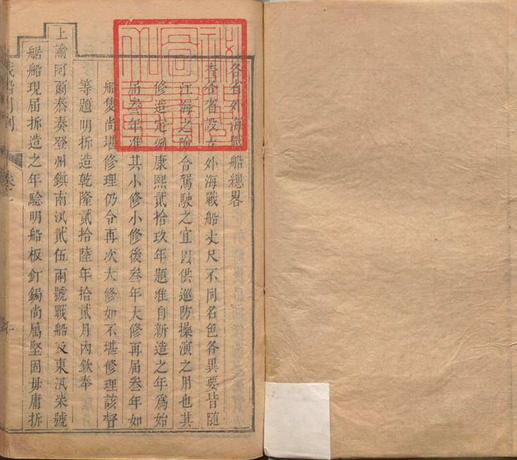 各省外海戰船總畧
查各省設立外海戰船丈尺不同名色各異要皆隨
江海之險合駕駛之宜因供巡防操演之用也其
修造定例康熙貳拾玖年題准自新造之年為始
屆叁年准其小修小修後叁年大修再屆叁年如
船隻尚堪修理仍令再次大修如不堪修理該督
等題明拆造乾隆貳拾陸年拾貳月內欽奉
上諭阿爾泰奏登州鎮南汛貳伍兩號戰船及東汛柒號
艍船現屆拆造之年驗明船板釘鋦尚屬堅固毋庸拆
戰船則例